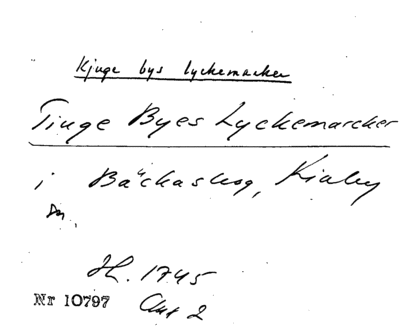 Kjuge bys lyckemarker
Tiuge Byes Lyckemarcker
i Bäckaskog, Kiaby
sn.
H. 1745
Nr 10797 Akt 2